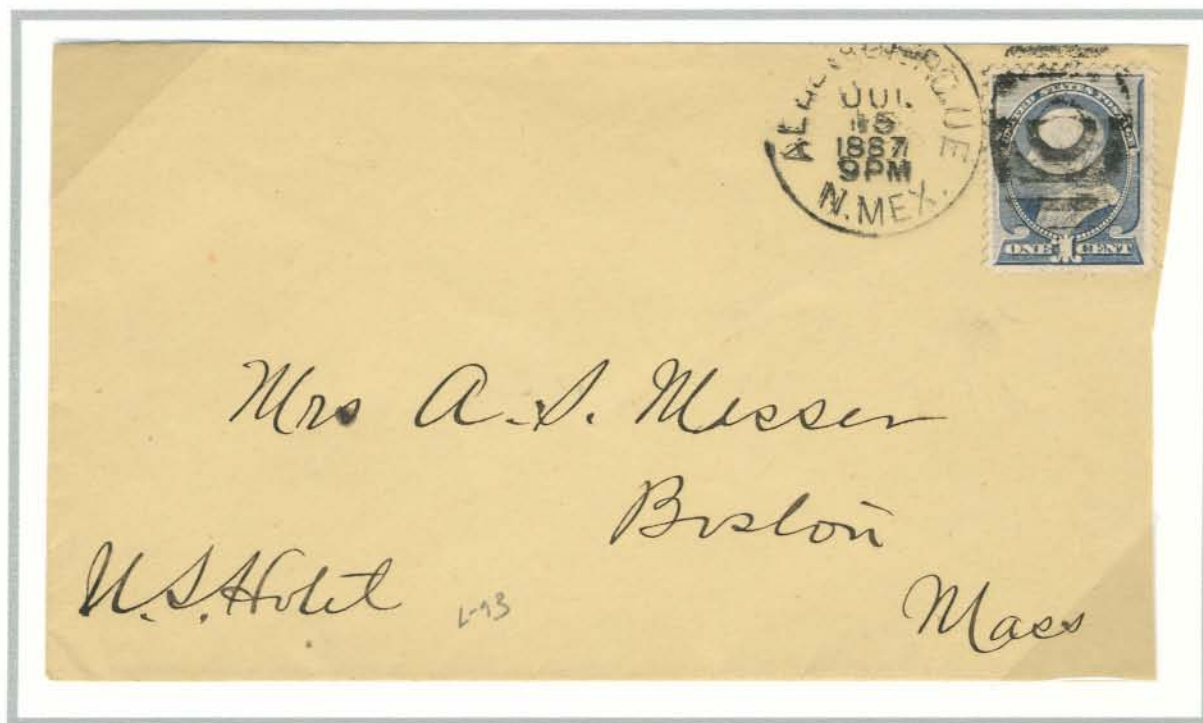 ALBUQUERQUE
JUL
15
1887
9PM
N. MEX.
UNITED STATES POSTAGE
ONE 1 CENT
Mrs A. S. Messer
Boston
U. S. Hotel
Mass